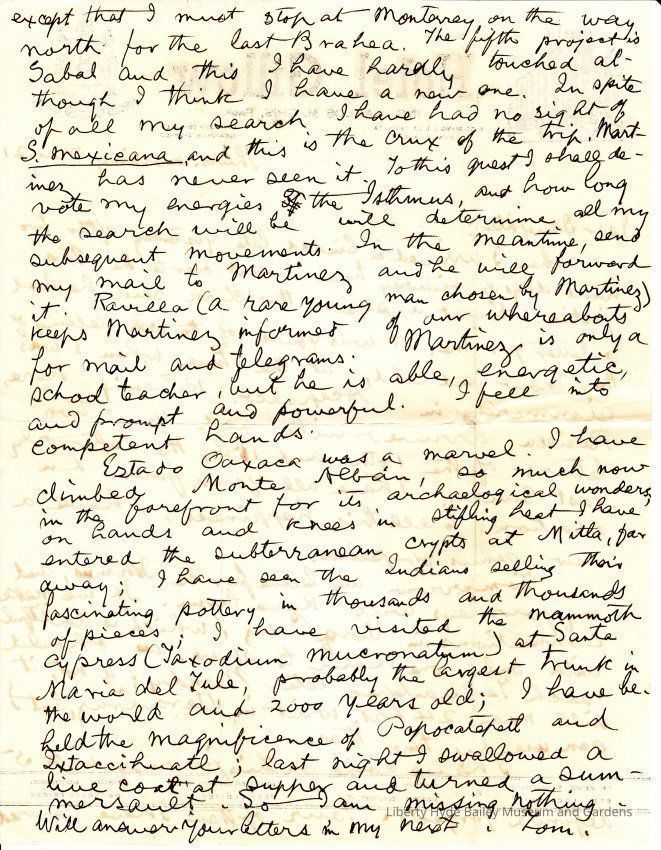 except that I must stop at Monterey on the way
north for the last Brahea. The fifth project is
Sabal and this I have hardly touched al-
though I think I have a new one. In spite
of all my search I have had no sight of
S. mexicana and this is the crux of the trip. Mart-
inez has never seen it. To this quest I shall de-
vote my energies the Isthmus, and how long
the search will be will determine all my
subsequent movements. In the meantime, send
my mail to Martinez and he will forward
it. Ravilla (a rare young man chosen by Martinez)
keeps Martinez informed of our whereabouts
for mail and telegrams. Martinez is only a
school teacher, but he is able, energetic,
and prompt and powerful. I fell into
competent hands.
Estado Oaxaca was a marvel. I have
climbed Monte Albán, so much now
in the forefront for its archaelogical wonders;
on hands and knees in stifling heat I have
entered the subterranean crypts at Mitla, far
away; I have seen the Indians selling their
fascinating pottery in thousands and thousands
of pieces; I have visited the mammoth
cypress (Taxodium mucronatum) at Santa
Maria del Tule, probably the largest trunk in
the world and 2000 years old; I have be-
held the magnificence of Popocatepetl and
Ixtaccihuatl; last night I swallowed a
live coal at supper and turned a sum-
mersault. So I am missing nothing.
Will answer your letters in my next.
Liberty Hyde Bailey Museum and Gardens